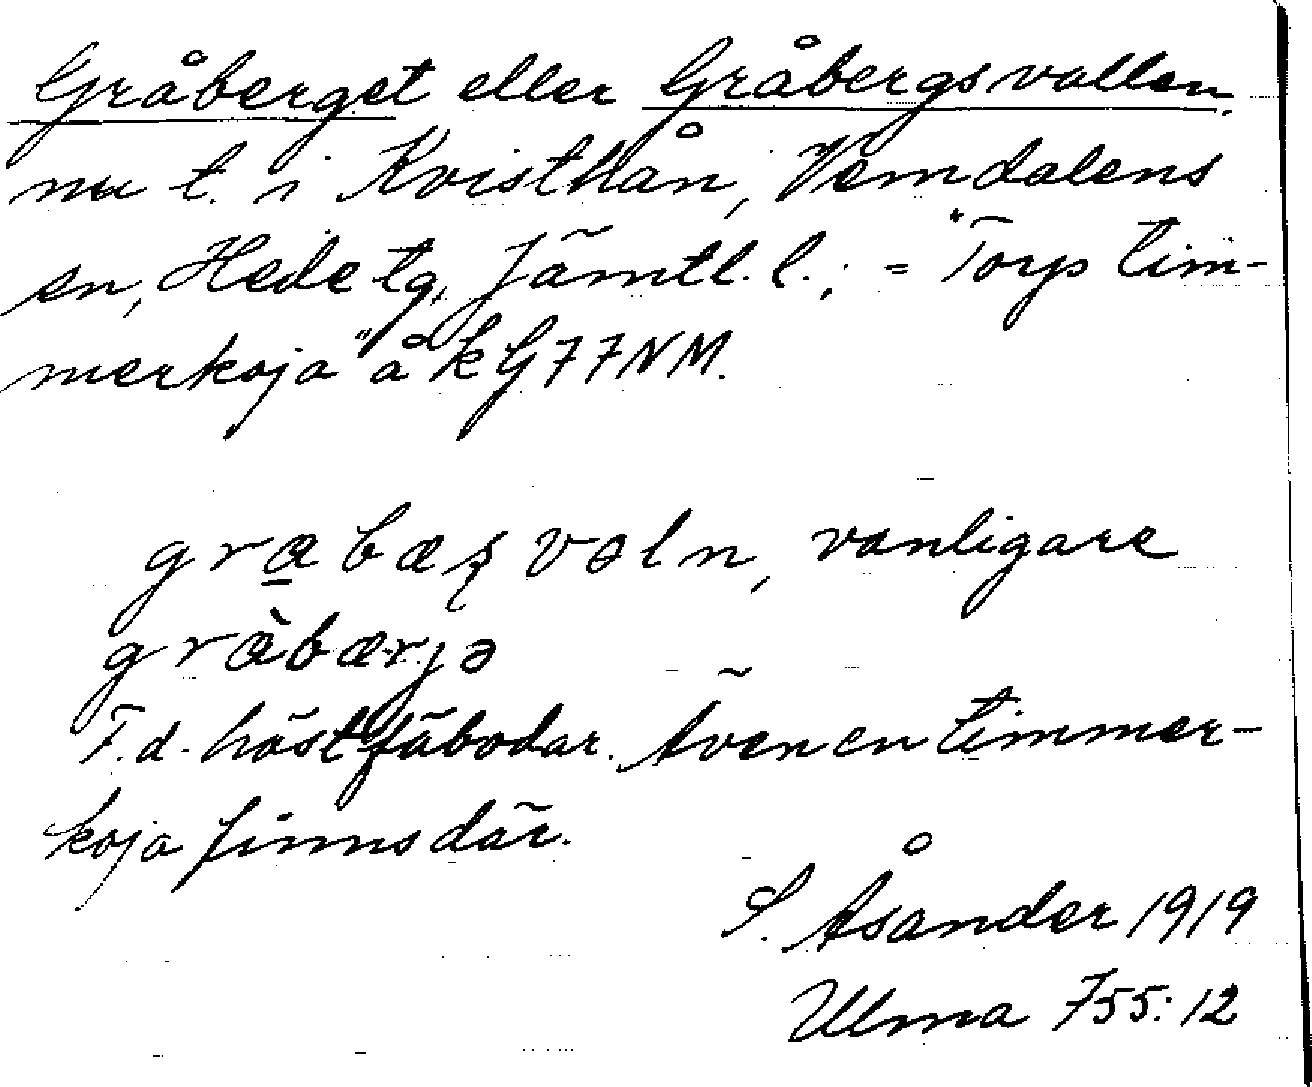 Gråberget eller Gråbergsvallen.
nu t. i Kvisthån, Vemdalens
sn, Hede tg, Jämtl. l.; = "Torps tim-
merkoja" å k G77NM.
vanligare
gràbærjə
F.d. höstfäbodar. Även en timmer-
koja finns där.
S. Åsander 1919
Ulma 755:12